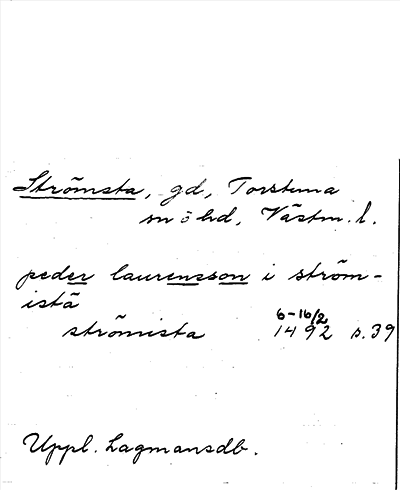 Strömsta, gd, Torstuna
sn o hd, Västm. l.
peder laurensson i ström-
istä
6-16/2
strömista 1492 s. 39
Uppl. Lagmansdb.